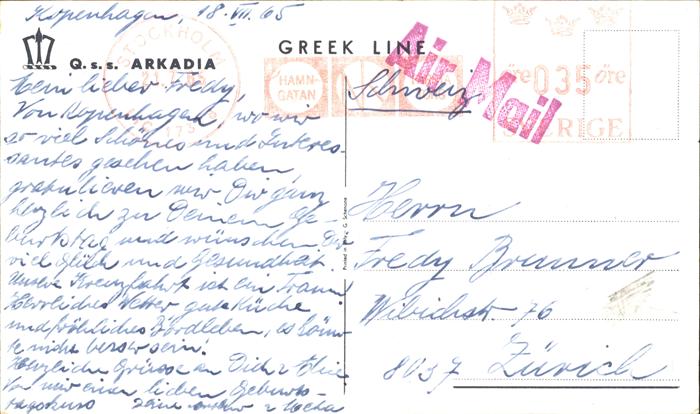 Kopenhagen, 18. VII. 65
Q.s.s. ARKADIA
GREEK LINE
Air Mail
STOCKHOLM
HAMN-
GATAN
öre 035 öre
SVERIGE
Mein lieber Fredy,
Von Kopenhagen, wo wir
so viel Schönes und Interes-
santes gesehen haben,
gratulieren wir Dir ganz
herzlich zu Deinem Ge-
burtstag und wünschen Dir
viel Glück und Gesundheit.
Unsere Kreuzfahrt ist ein Traum!
Herrliches Wetter, gute Küche
und fröhliches Bordleben, es könn-
te nicht besser sein!
Herzliche Grüsse an Dich &
Von mir einen lieben Geburts-
tagskuss
Schweiz
Herrn
Fredy Brunner
Wibichstr. 76
8037 Zürich